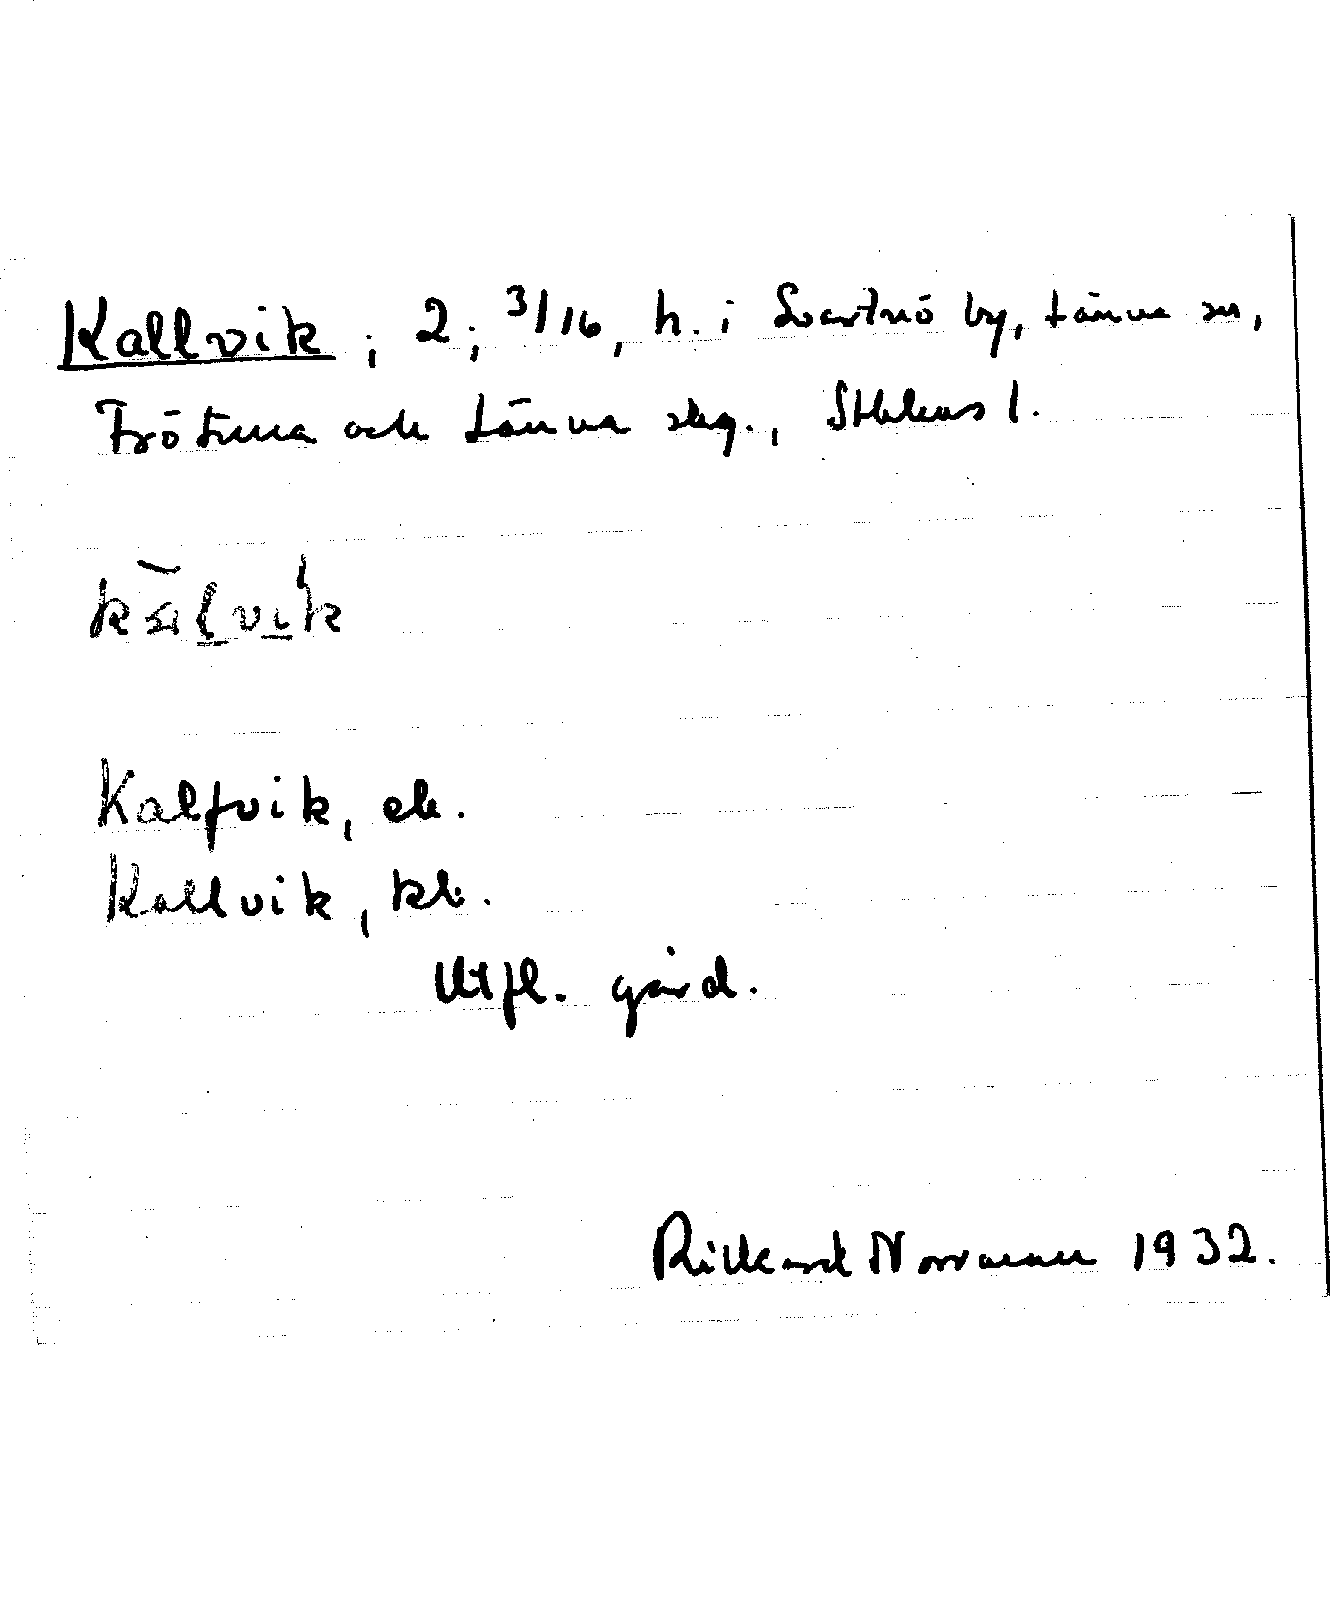 Kallvik, 2; 3/16, h. i Svartnö by, Länna sn,
Frötuna och Länna skg., Sthlms l.
Kalfvik, ek.
Kallvik, kb.
Utfl. gård.
Rickard Norrman 1932.